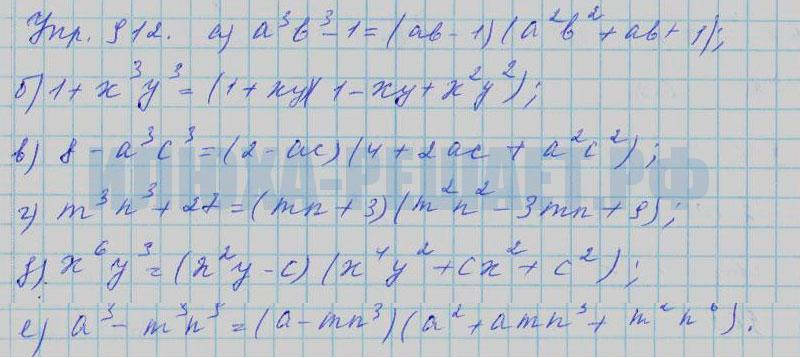 Упр. 912. а) a³b³-1=(ab-1)(a²b²+ab+1);
б) 1+x³y³=(1+xy)(1-xy+x²y²);
в) 8-a³c³=(2-ac)(4+2ac+a²c²);
г) m³n³+27=(mn+3)(m²n²-3mn+9);
д) x⁶y³=(x²y-c)(x⁴y²+cx²+c²);
е) a³-m³n⁵=(a-mn³)(a²+amn³+m²n⁶).